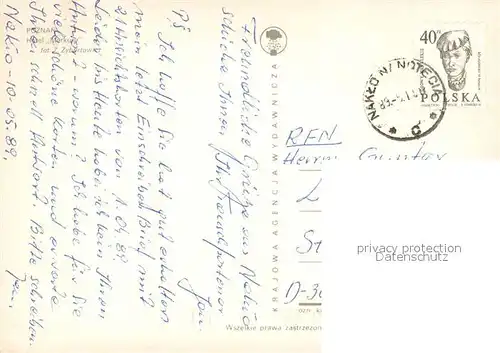 POZNAŃ
Hotel „Merkury"
fot. Z. Zyburtowicz
Freundliche Grüße aus Nakło
schicke Ihnen Ihr
Jan.
PS Ich hoffe Sie hat gut erhalten
mein letzt Einschreiben Brief mit
21 Ansichtskarten von 11.04.89.
Leider bis Heute habe ich kein Ihren
Antwort - warum? Ich habe für Sie
viele schöne Karten und erwarte
Ihren schnell Antwort. Bitte schreiben.
Nakło - 10-05.89, Jan.
KRAJOWA AGENCJA WYDAWNICZA
40 zł
POLSKA
NAKŁO N/NOTECIĄ
RFN
Herrn Gunter
D-30
Wszelkie prawa zastrzeżone
privacy protection
Datenschutz